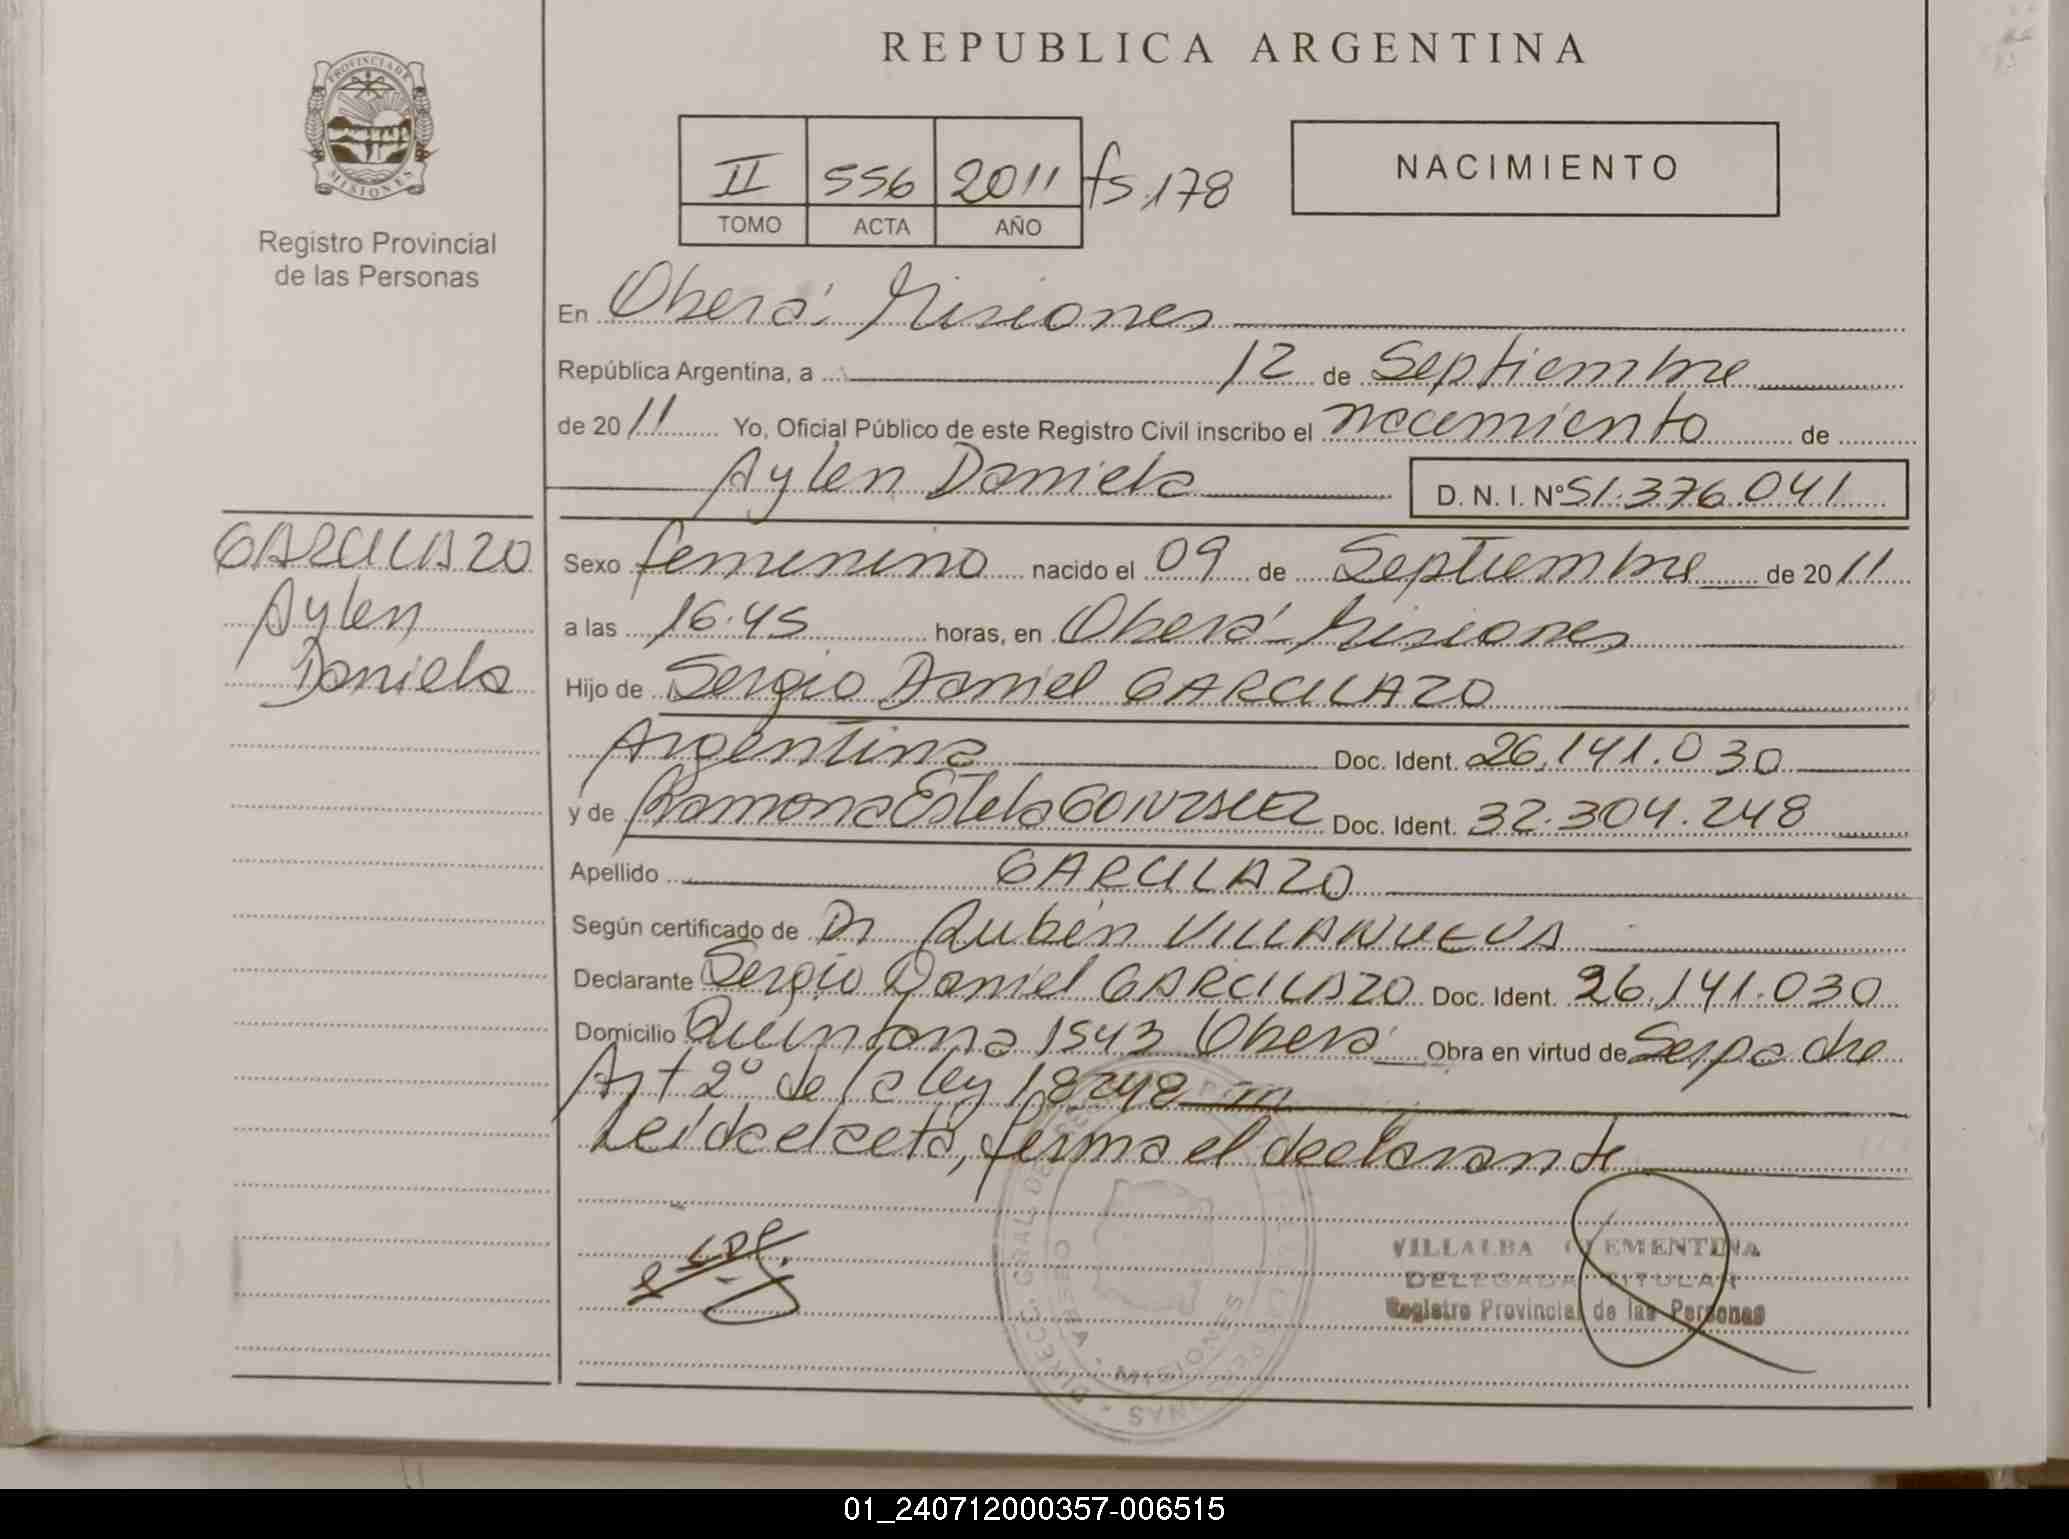 REPUBLICA ARGENTINA
PROVINCIA DE MISIONES
Registro Provincial
de las Personas
II 556 2011 fs.178
TOMO ACTA AÑO
NACIMIENTO
En Oberá Misiones
República Argentina, a 12 de Septiembre
de 2011 Yo, Oficial Público de este Registro Civil inscribo el nacimiento de
Aylen Daniela D. N. I. Nº 51.376.041
GARCILAZO
Aylen
Daniela
Sexo femenino nacido el 09 de Septiembre de 2011
a las 16.45 horas, en Oberá Misiones
Hijo de Sergio Daniel GARCILAZO
Argentina Doc. Ident. 26.141.030
y de Ramona Estela GONZALEZ Doc. Ident. 32.304.248
Apellido GARCILAZO
Según certificado de Dr Rubén VILLANUEVA
Declarante Sergio Daniel GARCILAZO Doc. Ident. 26.141.030
Domicilio Quintana 1543 Oberá Obra en virtud de Ser padre
Art 2º de la ley 18248
Leída el acta, firma el declarante
VILLALBA CLEMENTINA
DELEGADA TITULAR
Registro Provincial de las Personas
OBERA - MISIONES
01_240712000357-006515